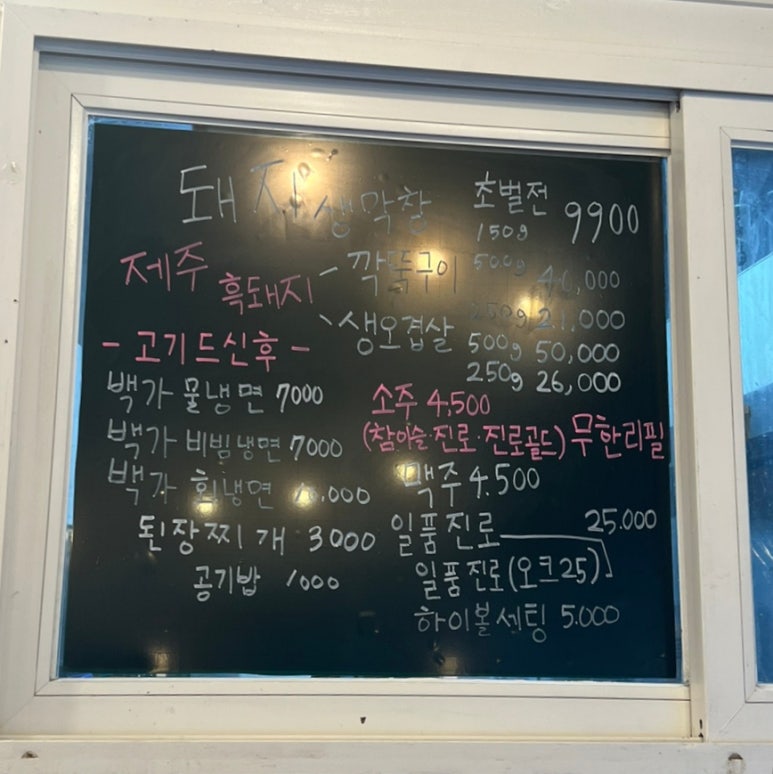 돼지 생막창 초벌전 150g 9900
제주 흑돼지 - 깍뚝구이 500g 40,000
250g 21,000
생오겹살 500g 50,000
250g 26,000
- 고기드신후 -
백가 물냉면 7000
백가 비빔냉면 7000
백가 회냉면 10,000
된장찌개 3000
공기밥 1000
소주 4,500
(참이슬·진로·진로골드) 무한리필
맥주 4.500
일품진로 25.000
일품진로(오크25)
하이볼세팅 5.000